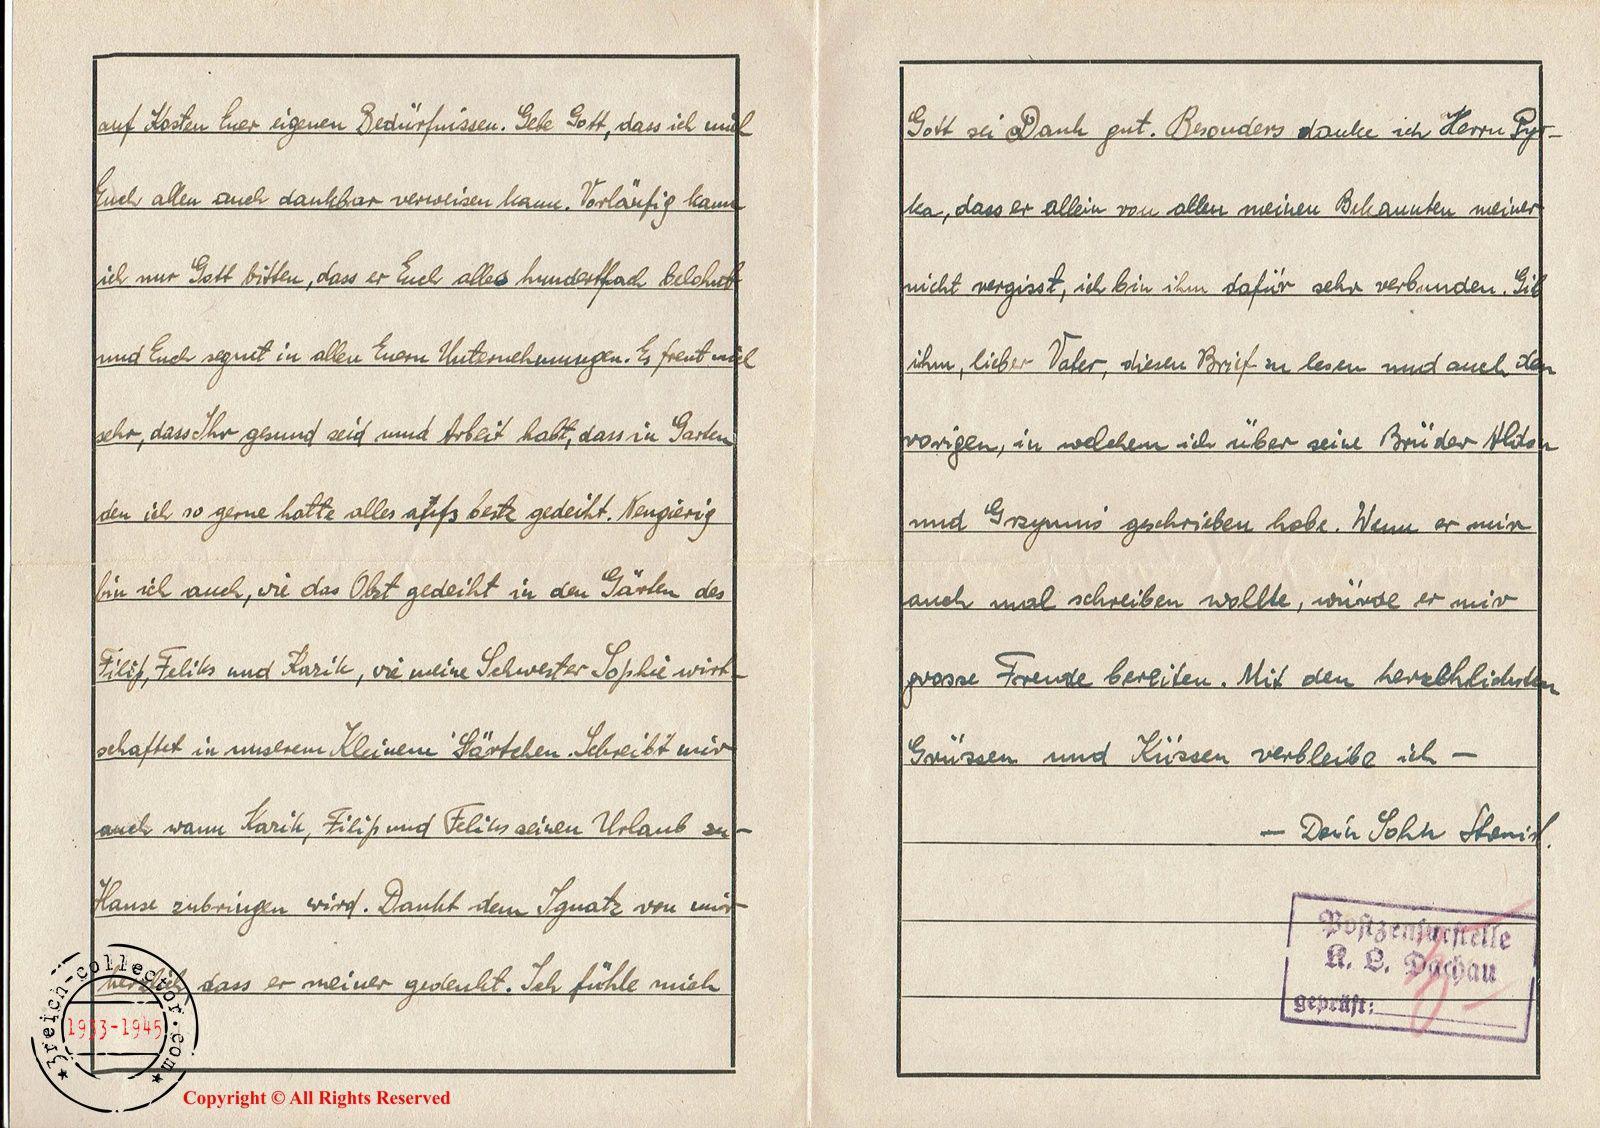 auf Kosten Euer eigenen Bedürfnissen. Gebe Gott, dass ich mich
Euch allen auch dankbar verweisen kann. Vorläufig kann
ich nur Gott bitten, dass er Euch alles hundertfach belohnt
und Euch segnet in allen Euern Unternehmungen. Es freut mich
sehr, dass Ihr gesund seid und Arbeit habt, dass in Garten
den ich so gerne hatte alles aufs beste gedeiht. Neugierig
bin ich auch, wie das Obst gedeiht in den Gärten des
Filip, Feliks und Kazik, wie meine Schwester Sophie wirt-
schaftet in unserem Kleinem Gärtchen. Schreibt mir
auch wann Kazik, Filip und Feliks seinen Urlaub zu-
Hause zubringen wird. Dankt dem Ignatz von mir
herzlich dass er meiner gedenkt. Ich fühle mich
Gott sei Dank gut. Besonders danke ich Herrn Pyr-
ka, dass er allein von allen meinen Bekannten meiner
nicht vergisst, ich bin ihm dafür sehr verbunden. Gib
ihm, lieber Vater, diesen Brief zu lesen und auch den
vorigen, in welchem ich über seine Brüder
und geschrieben habe. Wenn er mir
auch mal schreiben wollte, würde er mir
grosse Freude bereiten. Mit den herzlichsten
Grüssen und Küssen verbleibe ich —
— Dein Sohn Stanisl.
Postzensurstelle
K. L. Dachau
geprüft:
3reich-collector.com
1933-1945
Copyright © All Rights Reserved